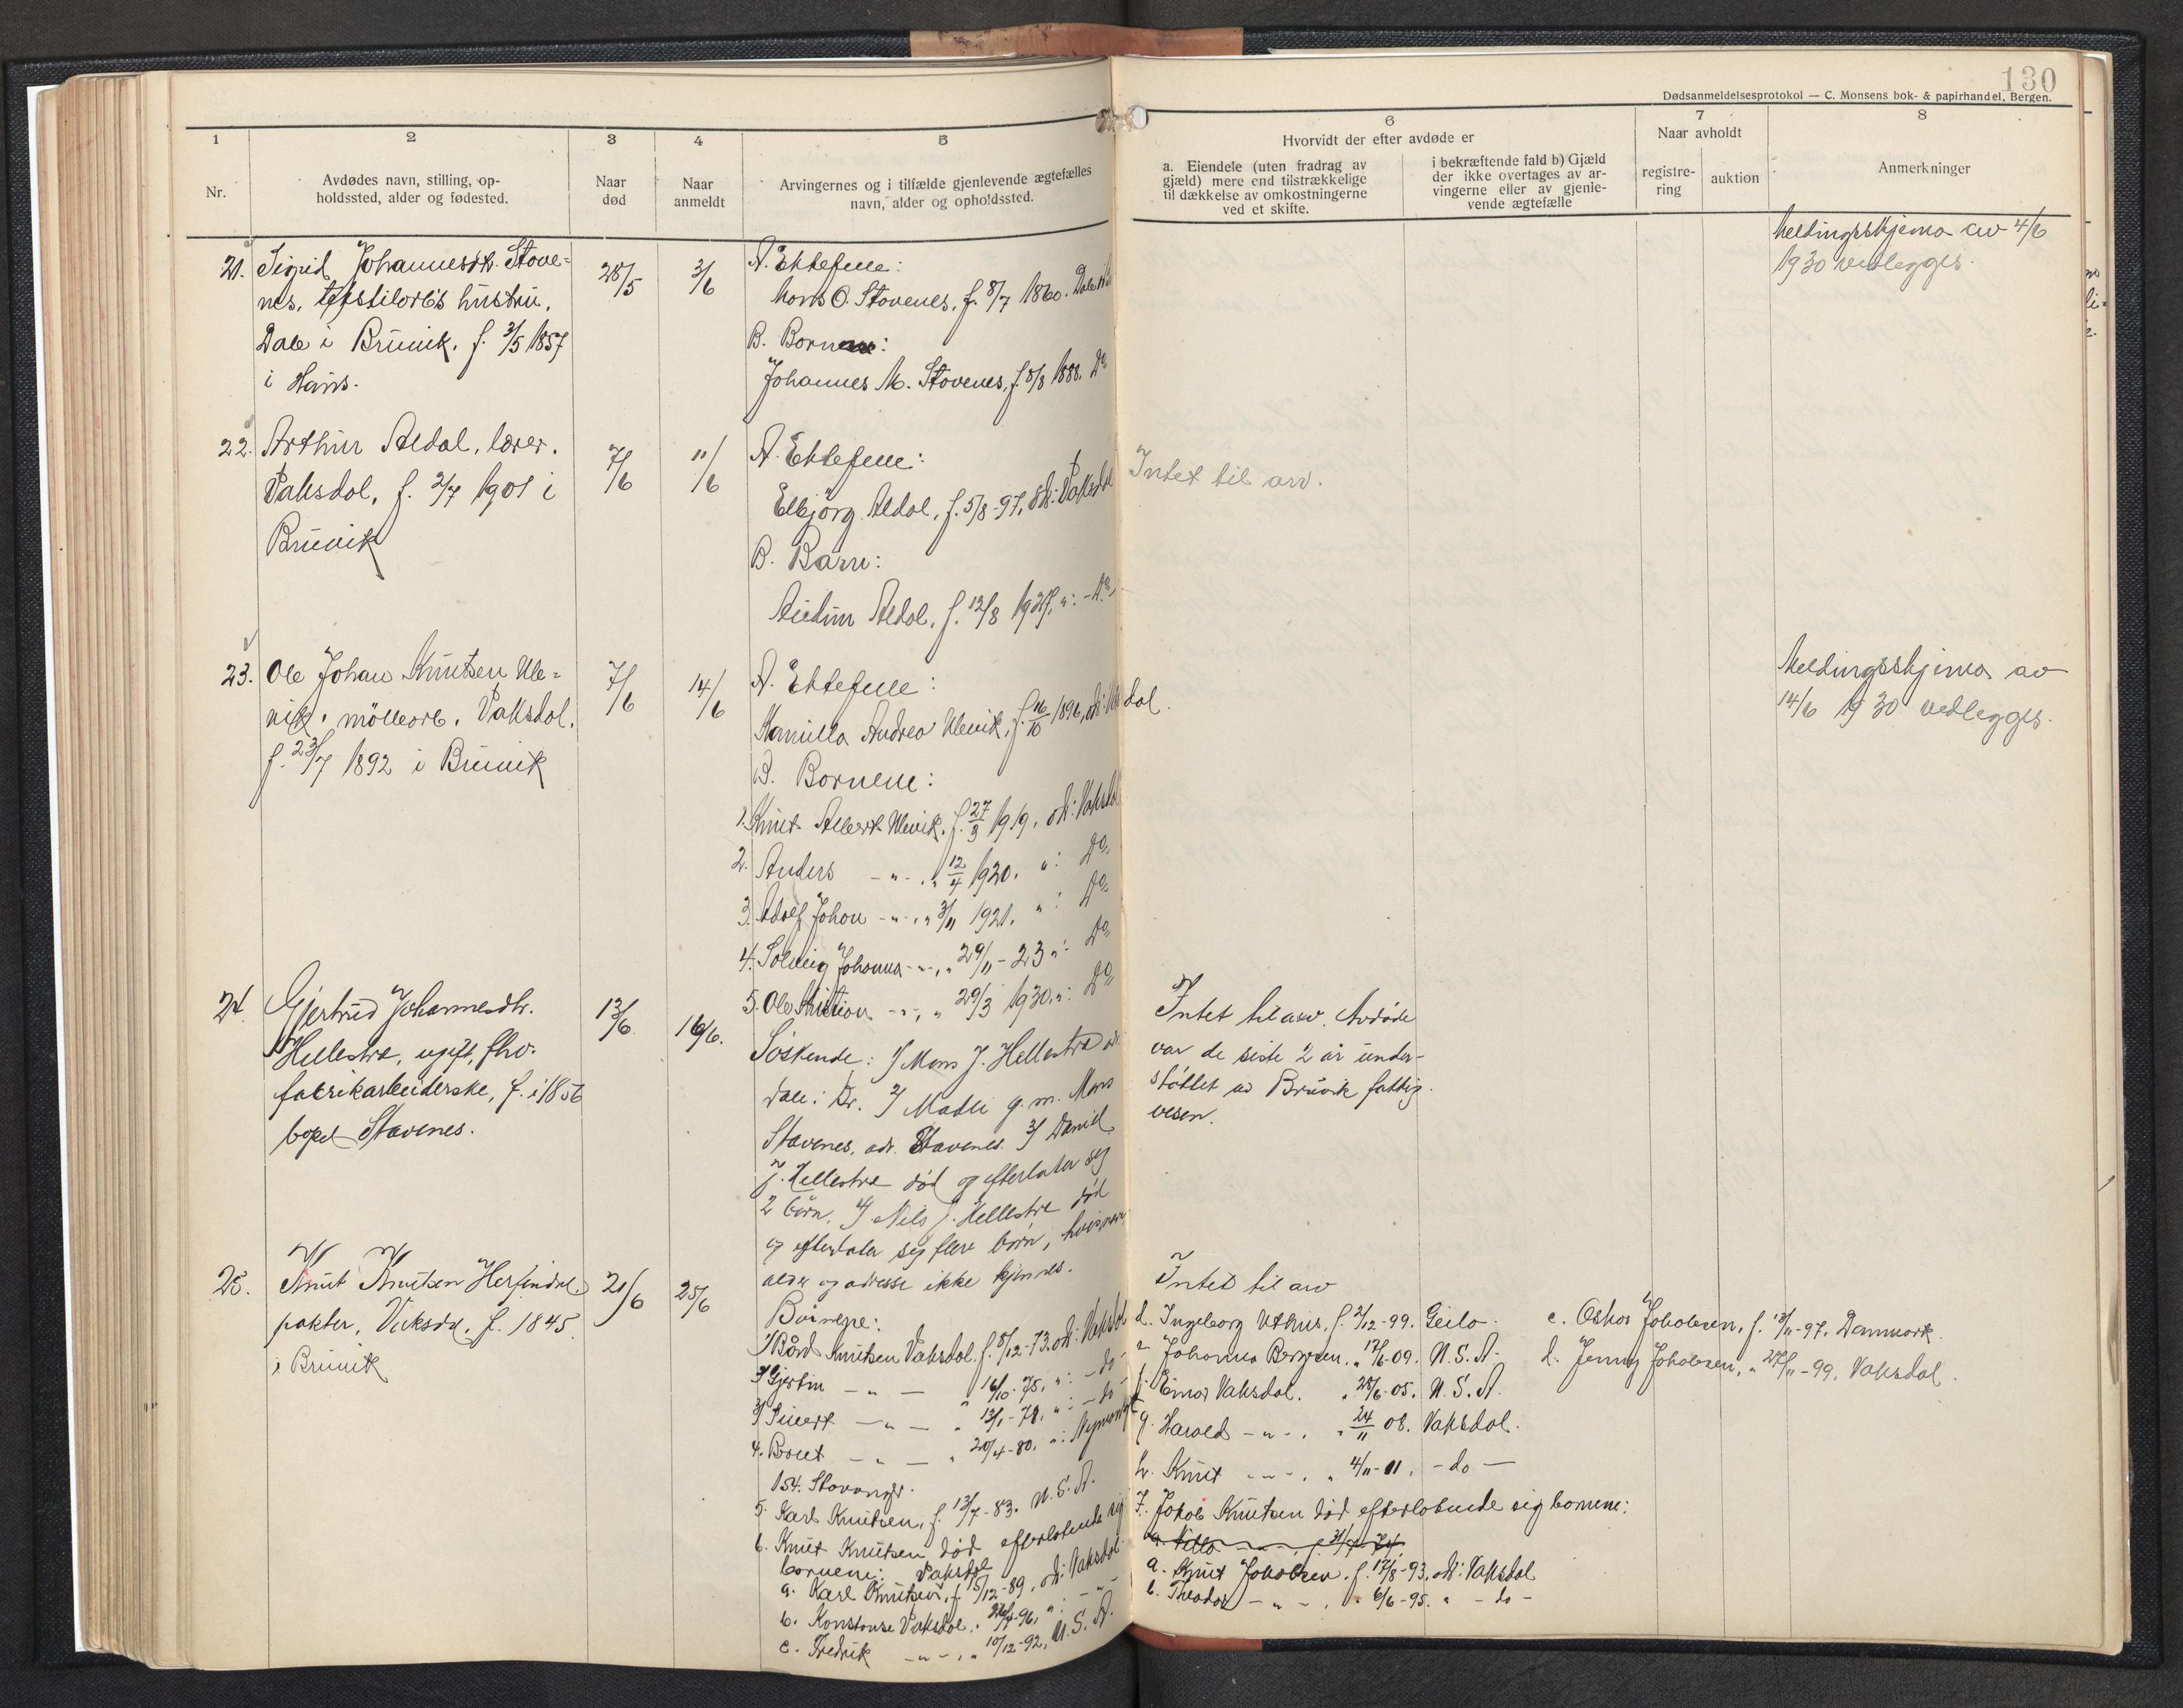 130
Dødsanmeldelsesprotokol — C. Monsens bok- & papirhandel, Bergen.
1 2 3 4 5 6 7 8
Nr.
Avdødes navn, stilling, op-
holdssted, alder og fødested.
Naar
død
Naar
anmeldt
Arvingernes og i tilfælde gjenlevende ægtefælles
navn, alder og opholdssted.
Hvorvidt der efter avdøde er
a. Eiendele (uten fradrag av
gjæld) mere end tilstrækkelige
til dækkelse av omkostningerne
ved et skifte.
i bekræftende fald b) Gjæld
der ikke overtages av ar-
vingerne eller av gjenle-
vende ægtefælle
Naar avholdt
registre-
ring
auktion
Anmerkninger
21. Sigrid Johannesdtr. Stove=
nes, tekstilarb's hustru,
Dale i Bruvik. f. 3/5 1857
i Haus.
28/5
3/6
A. Ektefelle:
Mons O. Stovenes, f. 8/7 1860. Dale
B. Born:
Johannes M. Stovenes, f. 8/8 1888. Do
Meldingsskjema av 4/6
1930 vedlegges.
22. Arthur Aldal, lærer.
Vaksdal, f. 2/7 1901 i
Bruvik
7/6
11/6
A. Ektefelle:
Elbjörg Aldal, f. 5/8-97, adr: Vaksdal
B. Barn:
Audun Aldal, f. 12/8 1927, ": - Do
Intet til arv.
23. Ole Johan Knutsen Ule=
vik, møllearb. Vaksdal,
f. 23/7 1892 i Bruvik
7/6
14/6
A. Ektefelle:
Kamilla Andrea Ulevik, f. 16/10 1896, adr: Vaksdal.
B. Bornene:
1. Knut Albert Ulevik, f. 27/3 1919, adr: Vaksdal
2. Anders - " - , " 12/4 1920. ": Do
3. Adolf Johan - " - , " 3/11 1921. ": Do
4. Solveig Johanna - " - , " 29/11-23 ": Do
5. Ole Kristian - " - , " 29/3 1930, ": Do
Meldingsskjema av
14/6 1930 vedlegges.
24. Gjertrud Johannesdtr.
Hellestre, ugift, fhv.
fabrikarbeiderske, f. i 1856
bopel Stavenes.
13/6.
16/6.
Søskende: 1/ Mons J. Hellestre adr.
Dale i Br. 2/ Madli g. m. Mons
Stavenes, adr. Stavenes. 3/ Daniel
J. Hellestre død og efterlater seg
2 børn. 4/ Nils J. Hellestre død
og efterlater seg flere børn, hvis navn
alder og adresse ikke kjennes.
Intet til arv. Avdøde
var de siste 2 år under-
støttet av Bruvik fattig-
vesen.
25. Knut Knutsen Herfindal,
pakter, Vaksdal, f. 1845
i Bruvik
21/6
25/6
Børnene:
1/ Bård Knutsen Vaksdal. f. 8/12-73. adr: Vaksdal
2/ Gjertin - " - " 16/10-75, ": - do -
3/ Sivert - " - " 13/1-78, ": - do -
4. Brent - " - " 20/4-80. ":
154. Stavanger.
5. Karl Knutsen, f. 13/7-83. U. S. A.
6. Knut Knutsen død efterlatende sig
bornene: Vaksdal
a. Karl Knutsen, f. 5/12-89, adr: Vaksdal.
b. Konstanse Vaksdal, " -96, ": - " -
c. Fredrik - " - , " 10/12-92, U. S. A.
Intet til arv
d. Ingeborg Uthus, f. 2/12-99. Geilo.
e Johanna Bergsen. " 17/6-09. U. S. A.
f. Einar Vaksdal. " 28/6-05. U. S. A.
g. Harald - " - . " 24/11 08. Vaksdal.
h. Knut - " - . " 4/11-11. - do -
7. Jakob Knutsen død efterlatende sig bornene:
a. Knut Jakobsen, f. 17/8-93, adr: Vaksdal
b. Theodor - " - , " 6/6-95. " - do -
c. Oskar Jakobsen, f. 13/11-97. Danmark.
d. Jenny Jakobsen, " 27/11-99, Vaksdal.